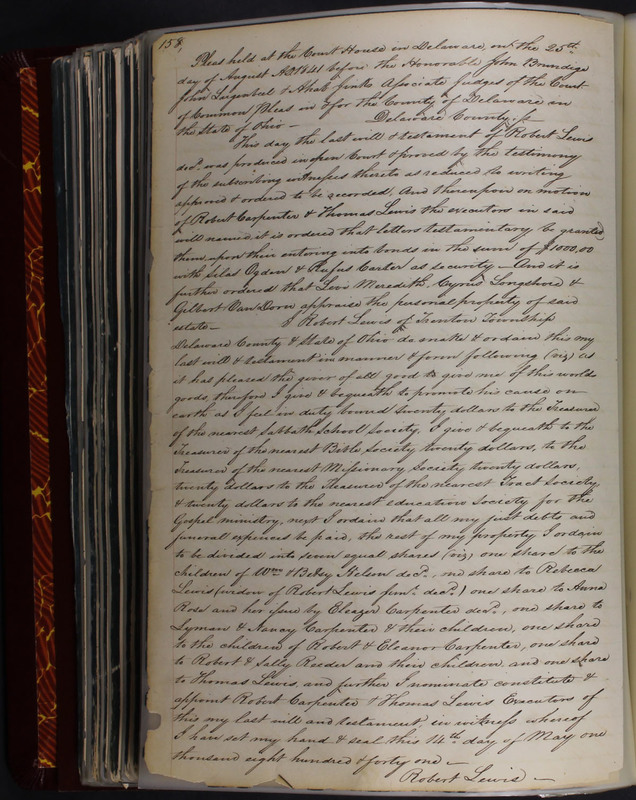 158,
Pleas held at the Court House in Delaware, on the 25th
day of August AD 1841 before the Honorable John Brundige
John Lugenbeel & Ahab Jinks Associate judges of the Court
of Common Pleas in & for the County of Delaware in
the State of Ohio — Delaware County. ss
This day the last will & testament of Robert Lewis
decd. was produced in open Court & proved by the testimony
of the subscribing witnesses thereto as reduced to writing
approved & ordered to be recorded, And thereupon on motion
of Robert Carpenter & Thomas Lewis the executors in said
will named it is ordered that letters testamentary be granted
them, upon their entering into bonds in the sum of $1000,00
with Silas Ogden & Rufus Carter as security — And it is
further ordered that Levi Meredith, Cyrus Longshore &
Gilbert Van Dorn appraise the personal property of said
estate — I Robert Lewis of Trenton Township
Delaware County & State of Ohio do make & ordain this my
last will & testament in manner & form following (viz) as
it has pleased the giver of all good to give me of this worlds
goods, therefore I give & bequeath to promote his cause on
earth as I feel in duty bound twenty dollars to the Treasurer
of the nearest Sabbath School Society, I give & bequeath to the
Treasurer of the nearest Bible Society twenty dollars, to the
Treasurer of the nearest Missionary Society twenty dollars,
twenty dollars to the Treasurer of the nearest Tract Society,
& twenty dollars to the nearest education Society for the
Gospel ministry, next I ordain that all my just debts and
funeral expences be paid, the rest of my property I ordain
to be divided into seven equal shares (viz) one share to the
children of Wm & Betsy Kelson decd., one share to Rebecca
Lewis (widow of Robert Lewis junr. decd.) one share to Anna
Rose and her issue by Eleazer Carpenter decd., one share to
Lyman & Nancy Carpenter & their children, one share
to the children of Robert & Eleanor Carpenter, one share
to Robert & Sally Reeder and their children, and one share
to Thomas Lewis, and further I nominate constitute &
appoint Robert Carpenter & Thomas Lewis Executors of
this my last will and testament, in witness whereof
I have set my hand & seal this 14th day of May one
thousand eight hundred & forty one —
Robert Lewis —